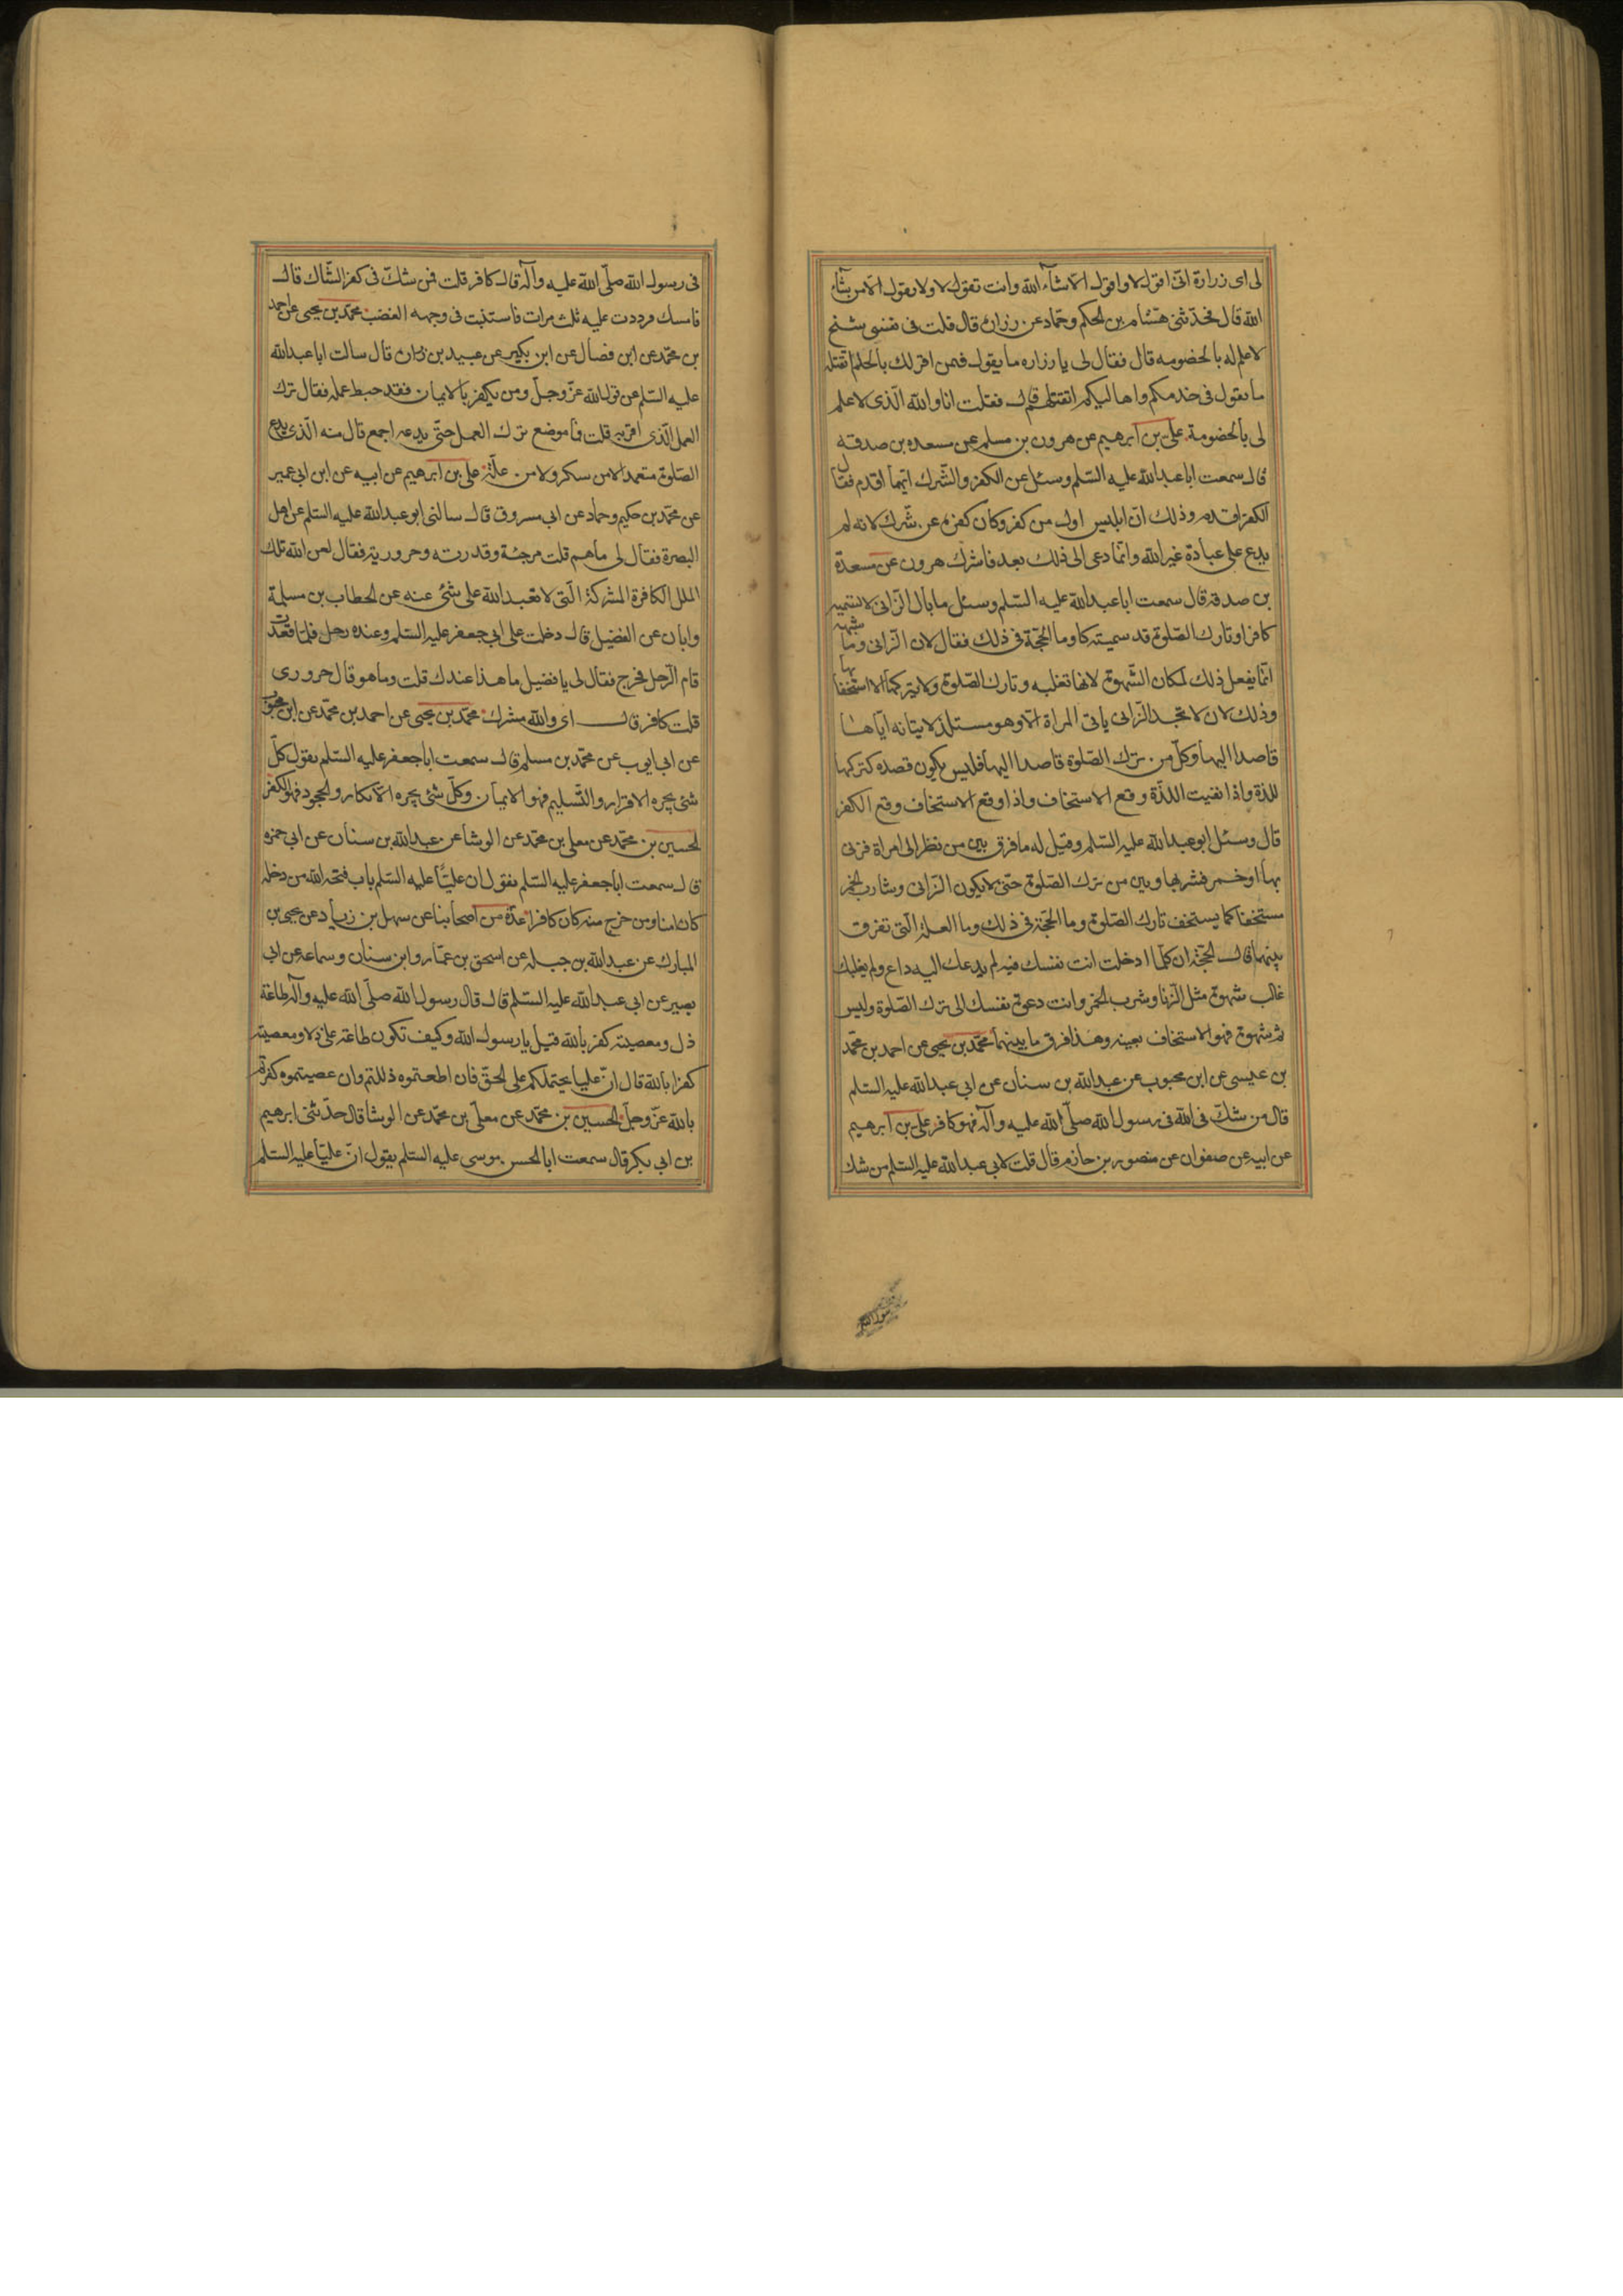 لی ای زرارة انّی اقول لا واقول الّا ما شاء الله وانت تقول لا ولا یقول الّا من یشاء
الله قال فحدّثنی هشام بن الحکم وحمّاد عن زرارة قال قلت فی نفسی شیخ
لا علم له بالخصومه قال فقال لی یا زراره ما یقول فیمن اقر لک بالحکم اتقتله
ما یقول فی خدمکم واهالیکم اتقتلهم قال فقلت انا والله الّذی لا علم
لی بالخصومة علی بن ابرهیم عن هرون بن مسلم عن مسعده بن صدقه
قال سمعت ابا عبد الله علیه السّلم وسئل عن الکفر والشّرک ایّهما اقدم فقال
الکفر اقدم وذلک انّ ابلیس اول من کفر وکان کفره عن شرک لانه لم
یدع علی عبادة غیر الله وانّما دعی الی ذلک بعد فاشرک هرون عن مسعدة
بن صدقه قال سمعت ابا عبد الله علیه السّلم وسئل ما بال الزّانی لا تسمیه
کافرا وتارک الصّلوة قد سمیته کا وما الحجّة فی ذلک فقال لان الزّانی وما اشبهه
انّما یفعل ذلک لمکان الشّهوة لانها تغلبه وتارک الصّلوة ولا یترکها الا استخفافا بها
وذلک لان لا تجد الزّانی یاتی المراة الا وهو مستلذ لایتانه ایّاها
قاصدا الیها وکلّ من ترک الصّلوة قاصدا الیها فلیس یکون قصده کترکها
للذة واذا نفیت اللذّة وقع الاستخاف واذا وقع الاستخاف وقع الکفر
قال وسئل ابو عبد الله علیه السّلم وقیل له ما فرق بین من نظر الی امراة فزنی
بها او خمر فشربها وبین من ترک الصّلوة حتّی لا یکون الزّانی وشارب الخمر
مستخفا کما یستخف تارک الصّلوة وما الحجّة فی ذلک وما العلة الّتی تفرق
بینهما قال الحجّة ان کلّما ادخلت انت نفسک فیه لم یدعک الیه داع ولم یغلبک
غالب شهوة مثل الزّنا وشرب الخمر وانت دعوة نفسک الی ترک الصّلوة ولیس
ثم شهوة فهو الاستخاف بعینه وهذا فرق ما بینهما محمّد بن یحیی عن احمد بن محمّد
بن عیسی عن ابن محبوب عن عبد الله بن سنان عن ابی عبد الله علیه السّلم
قال من شکّ فی الله فی رسول الله صلّی الله علیه وآله فهو کافر علی بن ابرهیم
عن ابیه عن صفوان عن منصور بن حازم قال قلت لابی عبد الله علیه السّلم من شک
فی رسول الله صلّی الله علیه وآله قال کافر قلت فمن شکّ فی کفر الشّاک قال
فامسک فرددت علیه ثلث مرات فاستنبت فی وجهه الغضب محمّد بن یحیی عن احمد
بن محمّد عن ابن فضال عن ابن بکیر عن عبید بن زراره قال سالت ابا عبد الله
علیه السّلم عن قول الله عزّ وجلّ ومن یکفر بالایمان فقد حبط عمله فقال ترک
العمل الّذی اقربه قلت فما موضع ترک العمل حتّی یدعه اجمع قال منه الّذی یدع
الصّلوة متعمدا لا من سکر ولا من علّة علی بن ابرهیم عن ابیه عن ابن ابی عمیر
عن محمّد بن حکیم وحمّاد عن ابی مسروق قال سالنی ابو عبد الله علیه السّلم عن اهل
البصرة فقال لی ما هم قلت مرجئة وقدریه وحروریة فقال لعن الله تلک
الملل الکافرة المشرکة الّتی لا تعبد الله علی شئ عنه عن الخطاب بن مسلمة
وابان عن الفضیل قال دخلت علی ابی جعفر علیه السّلم وعنده رجل فلمّا قعدت
قام الرّجل فخرج فقال لی یا فضیل ما هذا عندک قلت وما هو قال حروری
قلت کافر قال ای والله مشرک محمّد بن یحیی عن احمد بن محمّد عن ابن محبوب
عن ابی ایوب عن محمّد بن مسلم قال سمعت ابا جعفر علیه السّلم یقول کلّ
شئ یجره الاقرار والتّسلیم فهو الایمان وکلّ شئ یجره الانکار والجحود فهو الکفر
الحسین بن محمّد عن معلی بن محمّد عن الوشا عن عبد الله بن سنان عن ابی حمزه
قال سمعت ابا جعفر علیه السّلم یقول ان علیّا علیه السّلم باب فتحه الله من دخله
کان امنا ومن خرج منه کان کافرا عدّة من اصحابنا عن سهل بن زیاد عن یحیی بن
المبارک عن عبد الله بن جبله عن اسحق بن عمّار وابن سنان وسماعه عن ابی
بصیر عن ابی عبد الله علیه السّلم قال قال رسول الله صلّی الله علیه وآله طاعة
ذل ومعصیته کفر بالله قیل یا رسول الله وکیف تکون طاعة علی ذلا ومعصیته
کفرا بالله قال انّ علیا یحملکم علی الحقّ فان اطعتموه ذللتم وان عصیتموه کفرتم
بالله عزّ وجلّ الحسین بن محمّد عن معلّی بن محمّد عن الوشا قال حدّثنی ابرهیم
بن ابی بکر قال سمعت ابا الحسن موسی علیه السّلم یقول انّ علیّا علیه السّلم